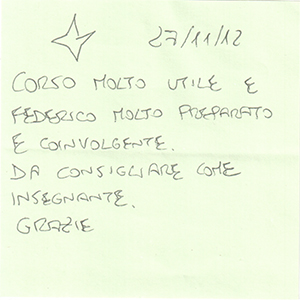 27/11/12
CORSO MOLTO UTILE E
FEDERICO MOLTO PREPARATO
E COINVOLGENTE.
DA CONSIGLIARE COME
INSEGNANTE.
GRAZIE